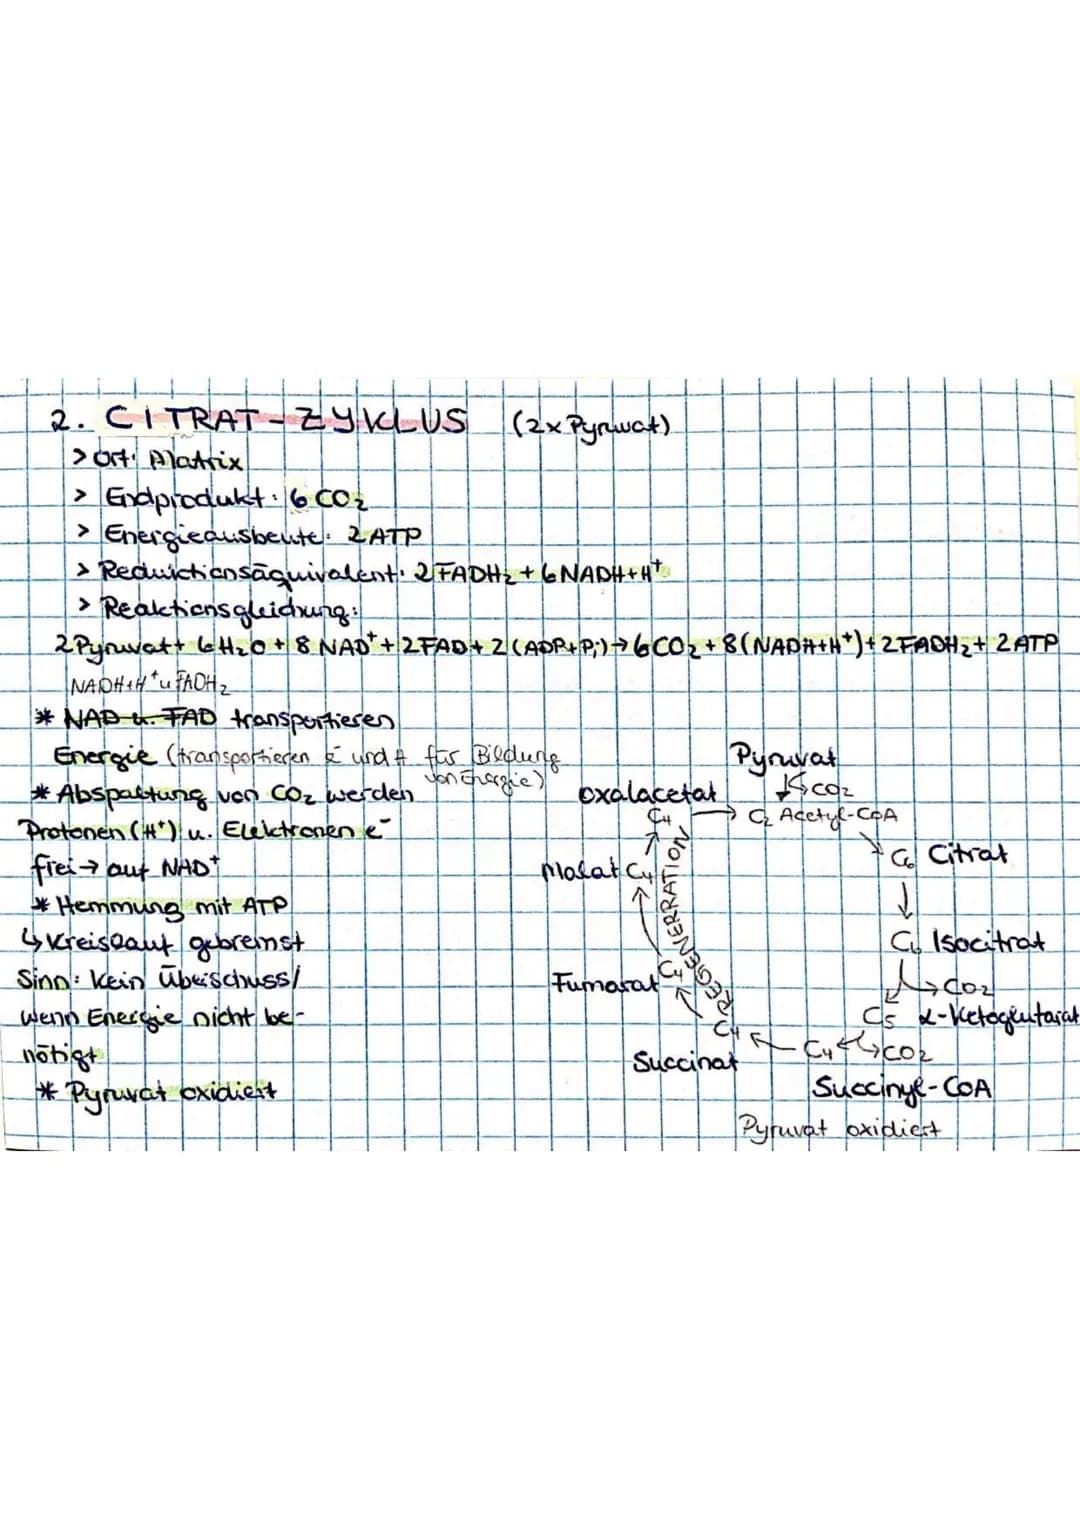 2. CITRAT-ZYKLUS (2x Pyruvat)
> Ort: Matrix
> Endprodukt: 6 CO₂
> Energieausbeute: 2 ATP
> Reduktionsäquivalent: 2 FADH₂ + 6 NADH+H⁺
> Reaktionsgleichung:
2 Pyruvat + 6 H₂O + 8 NAD⁺ + 2 FAD + 2 (ADP+Pi) → 6 CO₂ + 8 (NADH+H⁺) + 2 FADH₂ + 2 ATP
NADH+H⁺ u FADH₂
* NAD u. FAD transportieren
Energie (transportieren e⁻ und H für Bildung
von Energie)
* Abspaltung von CO₂ werden
Protonen (H⁺) u. Elektronen e⁻
frei → auf NAD⁺
* Hemmung mit ATP
↳ Kreislauf gebremst
Sinn: Kein Überschuss/
wenn Energie nicht be-
nötigt
* Pyruvat oxidiert
Pyruvat
CO₂
Oxalacetat
C₄ → C₂ Acetyl-CoA
C₆ Citrat
Malat C₄
REGENERRATION
C₆ Isocitrat
CO₂
Fumarat C₄
C₅ α-Ketoglutarat
C₄ C₄ CO₂
Succinat
Succinyl-CoA
Pyruvat oxidiert